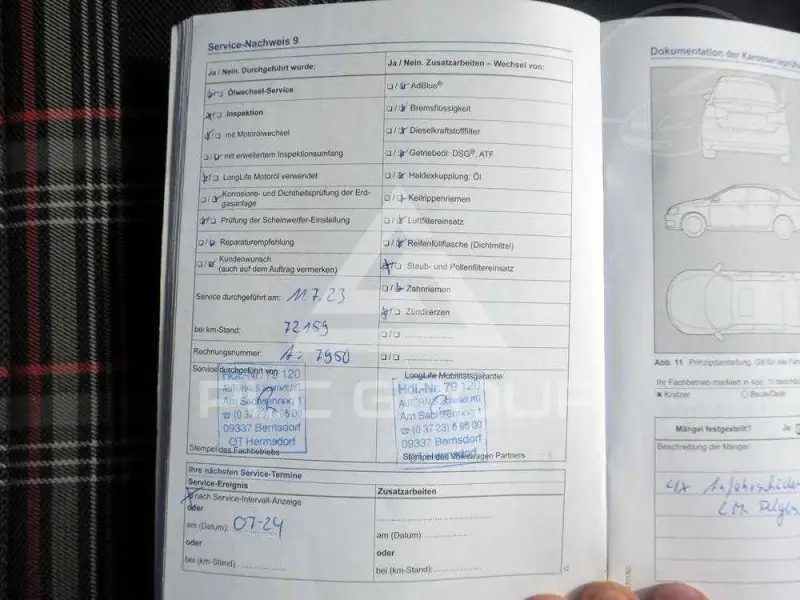 Service-Nachweis 9
Ja / Nein. Durchgeführt wurde:
Ölwechsel-Service
Inspektion
mit Motorölwechsel
mit erweitertem Inspektionsumfang
LongLife Motoröl verwendet
Korrosions- und Dichtheitsprüfung der Erd-
gasanlage
Prüfung der Scheinwerfer-Einstellung
Reparaturempfehlung
Kundenwunsch
(auch auf dem Auftrag vermerken)
Service durchgeführt am: 11.7.23
bei km-Stand: 72159
Rechnungsnummer: 7950
Service durchgeführt von
Hdl.-Nr. 79 120
AUTOHAUS
Am Sachsenring 1
09337 Bernsdorf
OT Hermsdorf
Stempel des Fachbetriebs
Ja / Nein. Zusatzarbeiten – Wechsel von:
AdBlue®
Bremsflüssigkeit
Dieselkraftstofffilter
Getriebeöl: DSG®, ATF
Haldexkupplung: Öl
Keilrippenriemen
Luftfiltereinsatz
Reifenfüllflasche (Dichtmittel)
Staub- und Pollenfiltereinsatz
Zahnriemen
Zündkerzen
LongLife Mobilitätsgarantie:
Hdl.-Nr. 79 120
AUTOHAUS
(0 37 23) 6 95 00
09337 Bernsdorf
Stempel des Volkswagen Partners
Ihre nächsten Service-Termine
Service-Ereignis
nach Service-Intervall-Anzeige
oder
am (Datum): 07-24
oder
bei (km-Stand):
Zusatzarbeiten
am (Datum):
oder
bei (km-Stand):
Dokumentation der Karosserieprüfu
Abb. 11 Prinzipdarstellung. Gilt für alle Fah
Ihr Fachbetrieb markiert in
Kratzer
Beule/Delle
Mängel festgestellt? Ja
Beschreibung der Mängel: